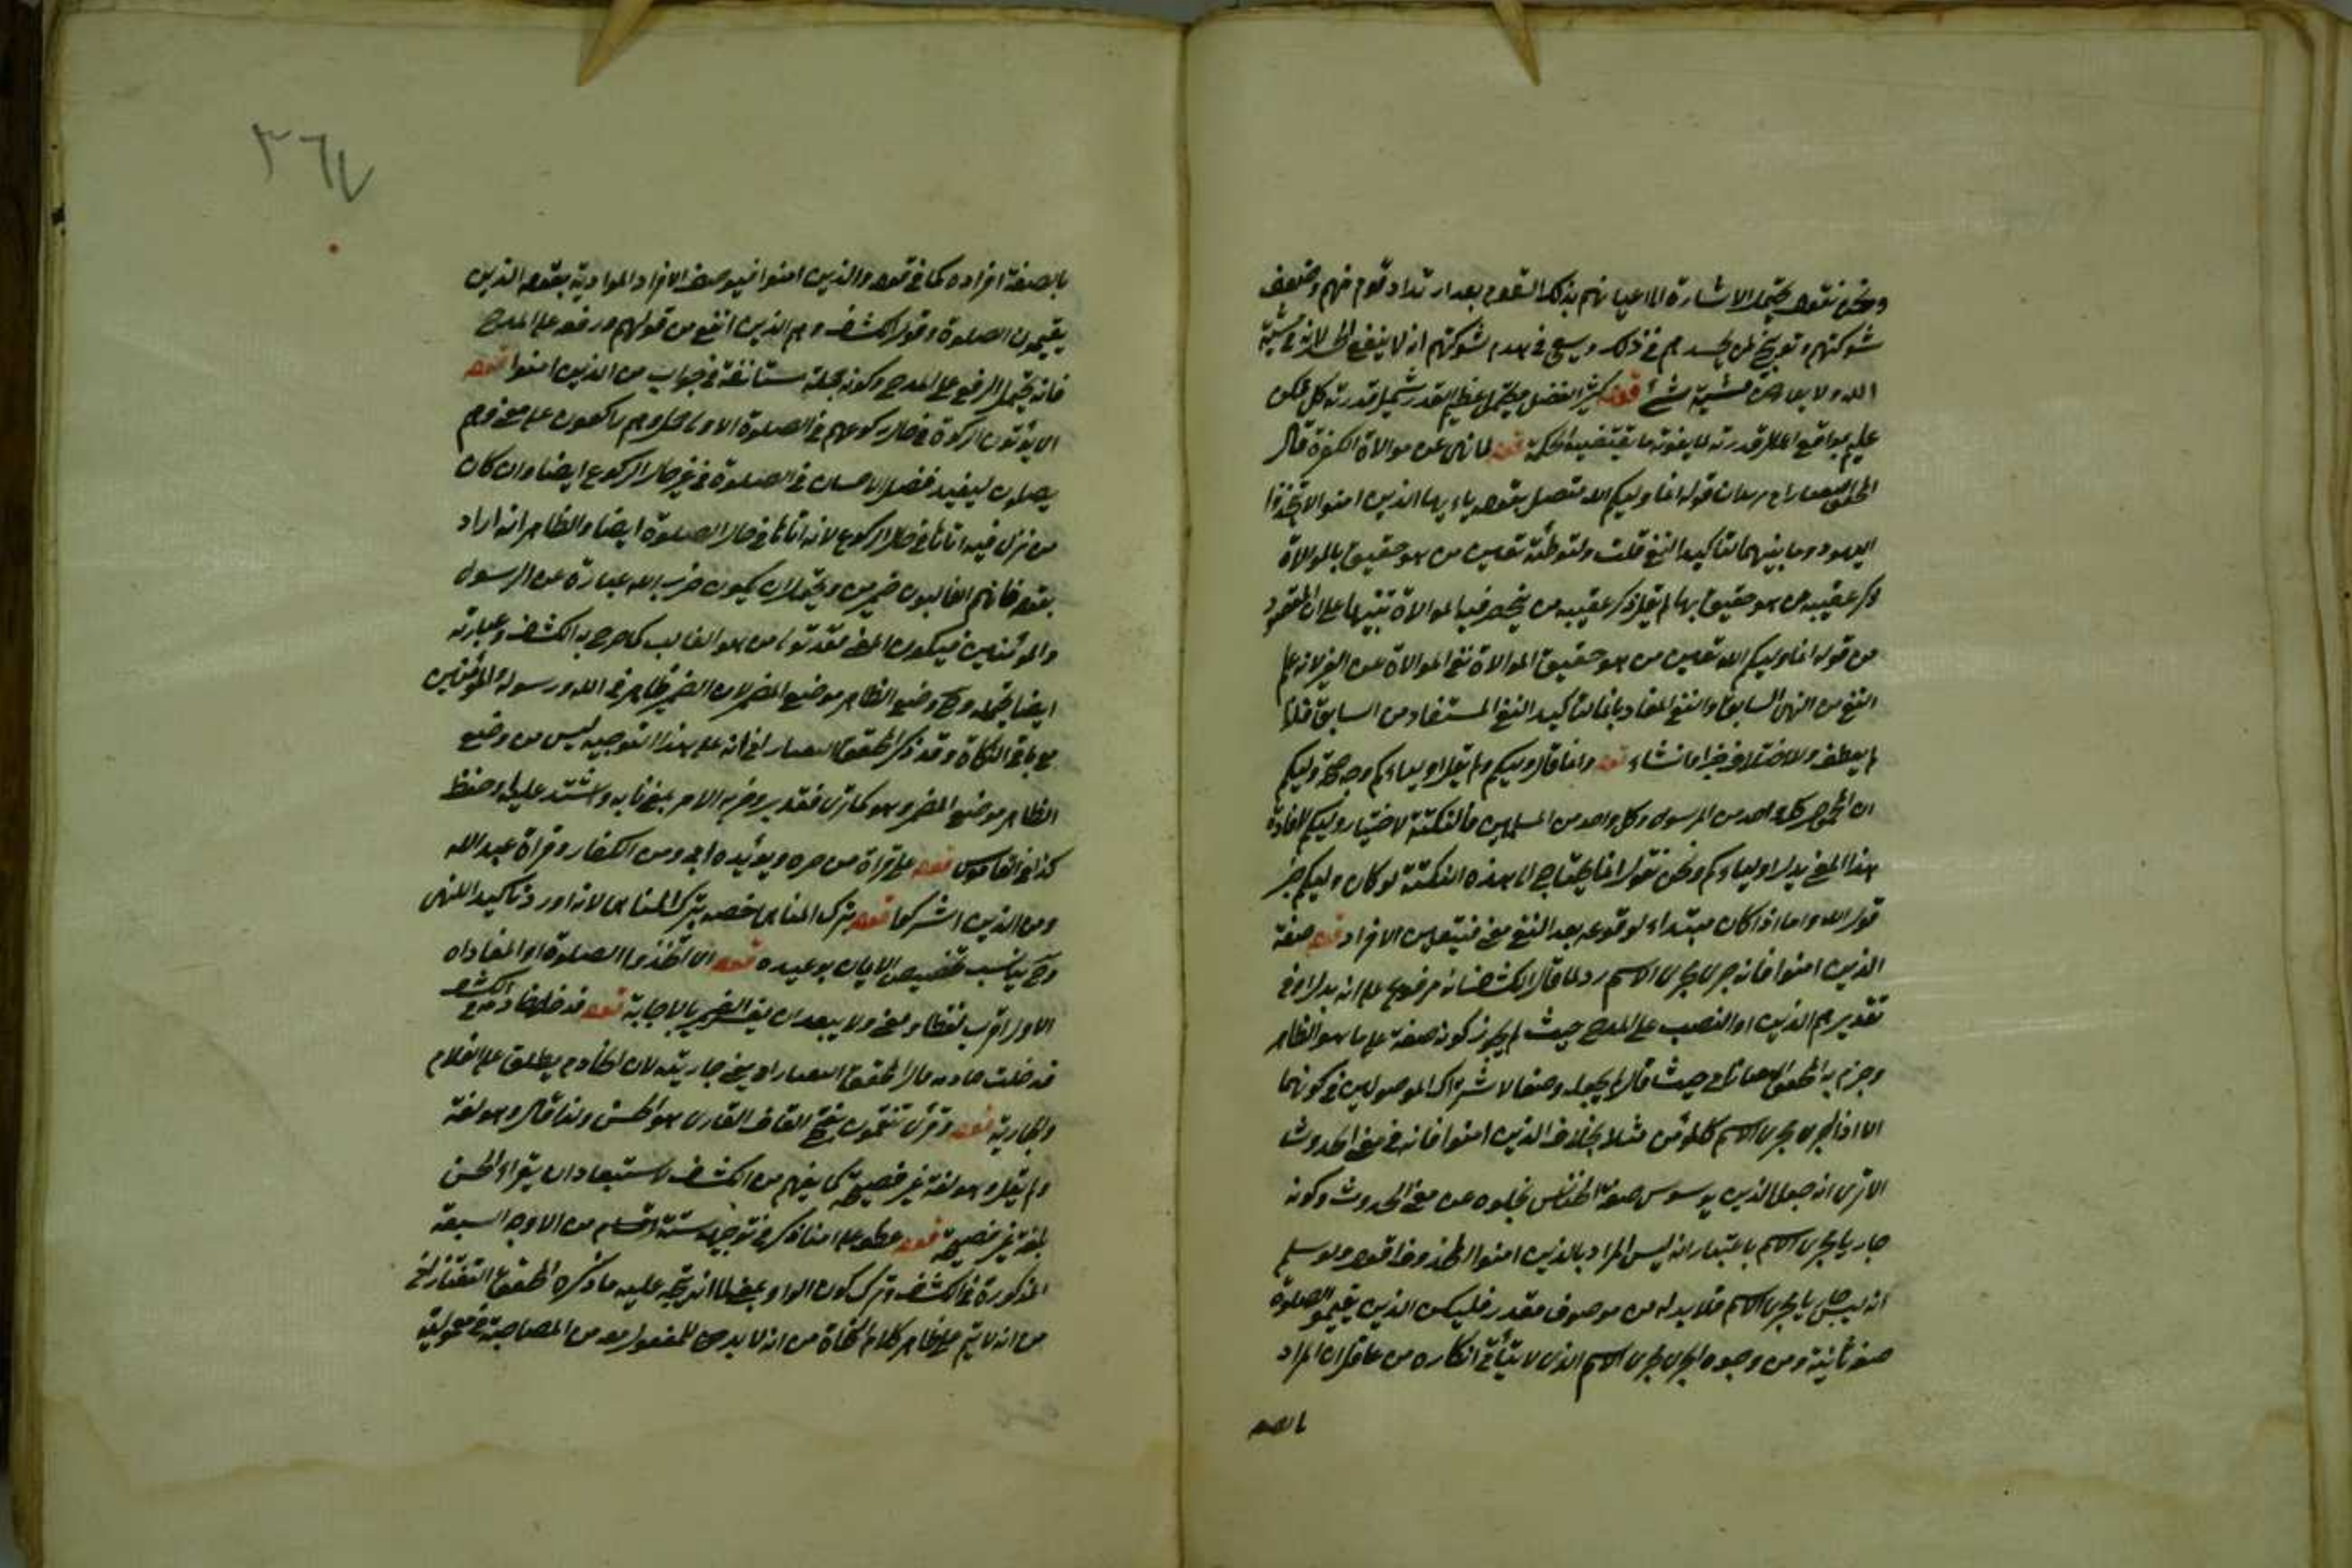 ونحن نقول يحتمل الاشارة الى اعيانهم بذلك القوم بعد ارتداد قوم منهم وضعف
شوكتهم وتوبيخ لمن يحسدهم في ذلك ويسعى في هدم شوكتهم انه لا ينفع الحسد لانه في مشية
الله ولا يعارض مشيته شئ قوله كثير الفضل يحتمل عظيم القدر شمل قدرته كل ممكن
عليم بمواقع اعمال قدرته لا يفوته ما يقتضيه الحكمة قوله لما نهى عن موالاة الكفرة قال
المحقق التفتازاني قوله انما وليكم الله متصل بقوله يا ايها الذين امنوا لا تتخذوا
اليهود وما بينهما لتاكيد النفي قلت ولتوطئة تعيين من هو حقيق بالموالاة
ذكر عقيبه من هو حقيق بها لم يقل ذكر عقيبه من ينحصر فيه الموالاة تنبيها على ان المقصود
من قوله انما وليكم الله تعيين من هو حقيق الموالاة نفي الموالاة عن الغير لانه علم
النفي من النهي السابق والنفي المفاد بانما لتاكيد النفي المستفاد من السابق فلذا
لم يعطف ولاختلافهما خبرا وانشاء قوله وانما قال وليكم ولم يقل اولياءكم وجه صحة وليكم
ان المحصور كل واحد من الرسول وكل واحد من المسلمين فالنكتة لاختيار وليكم لافادة
هذا المعنى بدل اولياءكم ونحن نقول انما يحتاج الى هذه النكتة لو كان وليكم خبر
قوله الله واما اذا كان مبتداء لوقوعه بعد النفي معنى فيتعين الافراد قوله صفة
الذين امنوا فانه جرى مجرى الاسم رد لما قال الكشاف انه مرفوع على انه بدل او في
تقديرهم الذين او النصب على المدح حيث لم يجوز كونه صفة على ما هو الظاهر
وجزم به المحقق التفتازاني حيث قال لم يجعله وصفا لاشتراك الموصولين في كونهما
الا اذا جرى مجرى الاسم كالمؤمن مثلا بخلاف الذين امنوا فانه في معنى الحدوث
الا ترى انه جعل الذي يوسوس صفة الخناس لخلوه عن معنى الحدوث وكونه
جاريا مجرى الاسم باعتبار انه ليس المراد بالذين امنوا الحدوث قوله ولو سلم
انه ليس جاريا مجرى الاسم فلا بد له من موصوف مقدر فليكن الذين يقيمون الصلوة
صفة ثانية ومن وجوه اجرائه مجرى الاسم الذي لا يتأتى انكاره من عاقل ان المراد
بالصفة
٣٦٧
بالصفة افراده كما في قوله والذين امنوا فيوصف الافراد المرادية بقوله الذين
يقيمون الصلوة وقول الكشاف وهم الذين انفع من قولهم ورفعه على المدح
فانه يحتمل الرفع على المدح وكونه جملة مستانفة في جواب من الذين امنوا قوله
اي يؤتون الزكوة في حال ركوعهم في الصلوة الاولى حمل وهم راكعون على معنى وهم
يصلون ليفيد فضل الاحسان في الصلوة في غير حال الركوع ايضا وان كان
من نزل فيه اتاها في حال الركوع لانه اتاها في حال الصلوة ايضا والظاهر انه اراد
بقوله فانهم الغالبون خبر من ويحتمل ان يكون حزب الله عبارة عن الرسول
والمؤمنين فيكون المعنى فقد تولى من هو الغالب كما صرح به الكشاف وعبارته
ايضا يحتمله وح وضع الظاهر موضع المضمر لان الضمير ظاهر في الله ورسوله والمؤمنين
مع باقي النكات وقد ذكر المحقق التفتازاني انه على هذا التوجيه ليس من وضع
الظاهر موضع المضمر وهو كما ترى فتدبر وحزبه الامر بمعنى نابه واشتد عليه او ضغط
كذا في القاموس قوله على قراءة من جره ويؤيده ابي ومن الكفار وقراءة عبد الله
ومن الذين اشركوا قوله بترك المناهي خصه بترك المناهي لانه اورد تاكيد النهي
وح يناسب تخصيص الايمان بوعيده قوله اي اتخذوا الصلوة او المناداة
الاول اقرب لفظا ومعنى ولا يبعد ان يفسر الضمير بالاجابة قوله فدخل خادمه وفي الكشاف
فدخلت خادمه قال المحقق التفتازاني يعني جاريته لان الخادم يطلق على الغلام
والجارية قوله وقرئ تنقمون بفتح القاف القاري هو الحسن ولذا قال وهو لغة
ولم يقل وهو لغة غير فصيحة كما يفهم من الكشاف لاستبعاد ان يقراء الحسن
بلغة غير فصيحة قوله عطف على امنا ذكر في توجيهه ستة اقسام من الاوجه السبعة
المذكورة في الكشاف وترك كون الواو بمعنى مع لما انه يتجه عليه ما ذكره المحقق التفتازاني
من انه لا يتم على ظاهر كلام النحاة من انه لا بد في المفعول معه من المصاحبة في معمولية